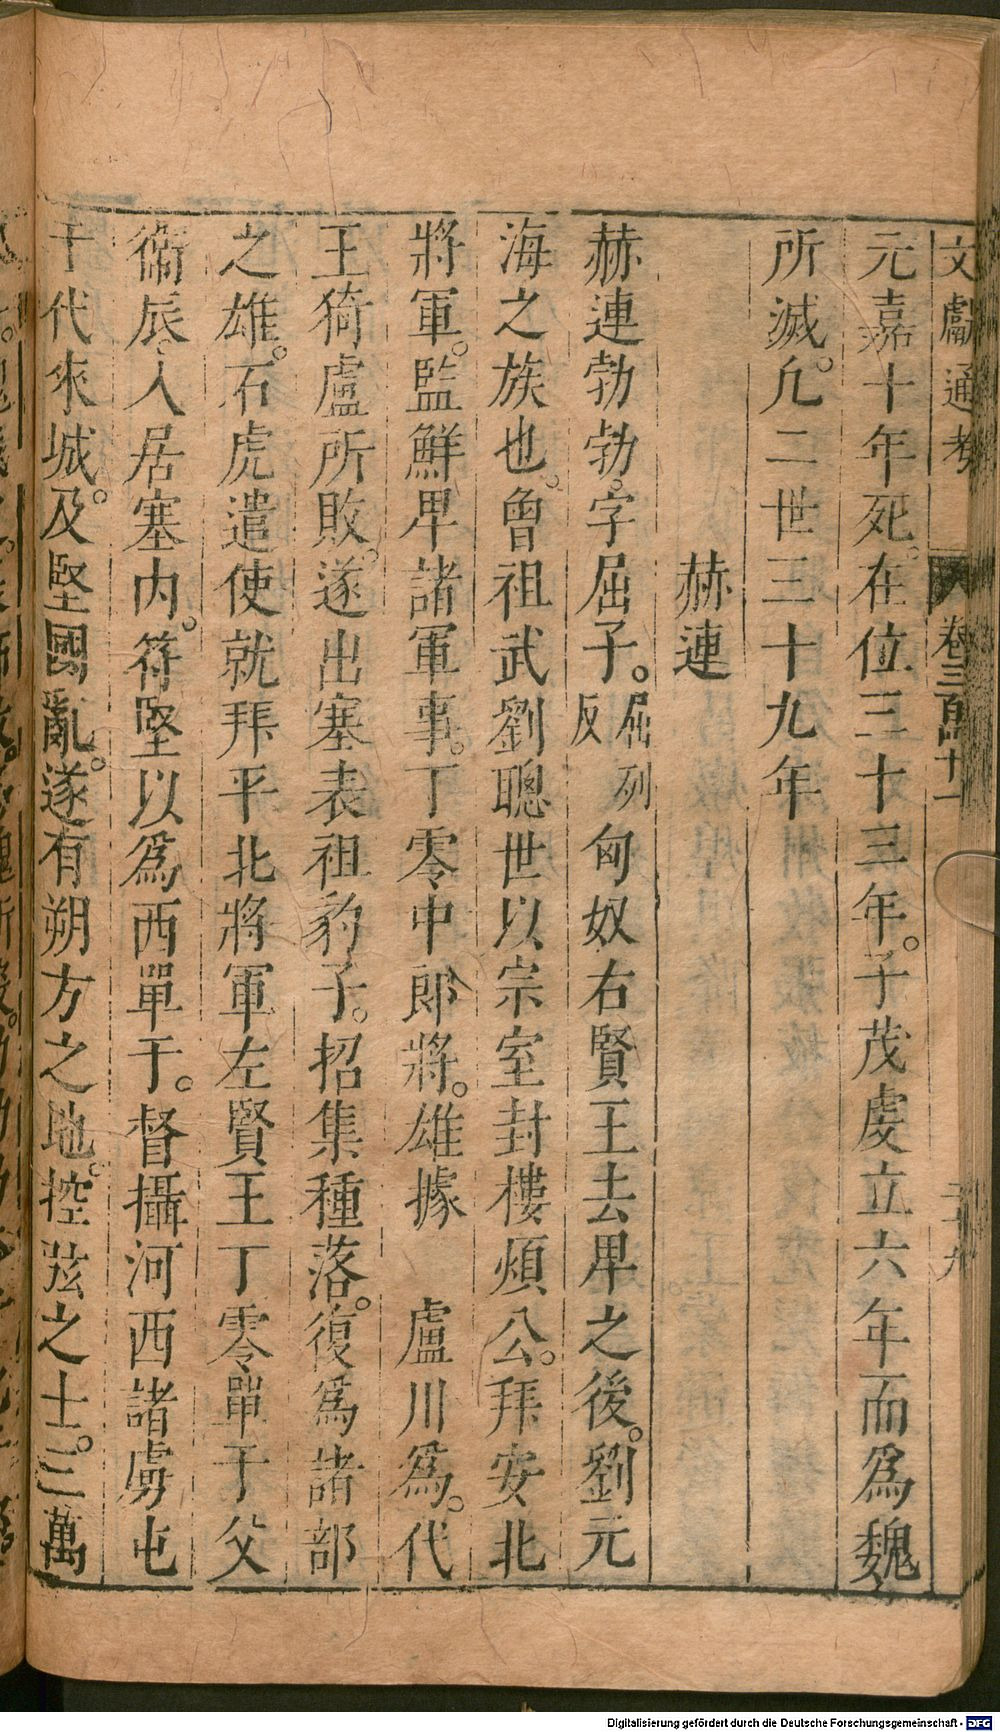 文獻通考 卷三百四十二
元嘉十年死。在位三十三年。子茂虔立六年而爲魏
所滅。凡二世三十九年
赫連
赫連勃勃。字屈子。屈列反匈奴右賢王去卑之後。劉元
海之族也。曾祖武劉聰世以宗室封樓煩公。拜安北
將軍。監鮮卑諸軍事。丁零中郎將。雄據 盧川爲。代
王猗盧所敗。遂出塞表祖豹子。招集種落。復爲諸部
之雄。石虎遣使就拜平北將軍左賢王丁零單于父
衞辰。入居塞内。苻堅以爲西單于。督攝河西諸虜屯
于代來城。及堅國亂。遂有朔方之地。控弦之士。三萬
Digitalisierung gefördert durch die Deutsche Forschungsgemeinschaft - DFG